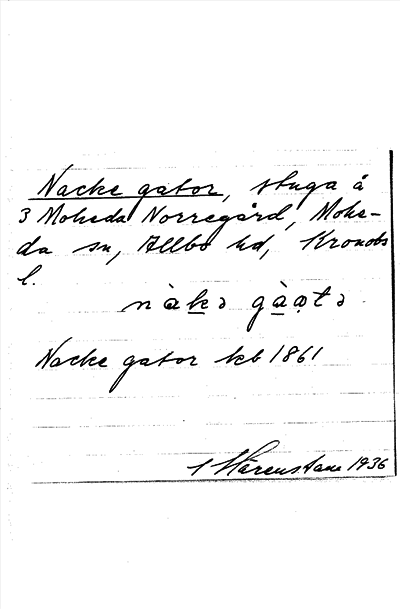 Nacke gator, stuga å
3 Moheda Norregård, Mohe-
da sn, Allbo hd, Kronobs
l.
nàkə gàạtə
Nacke gator kb 1861
1936